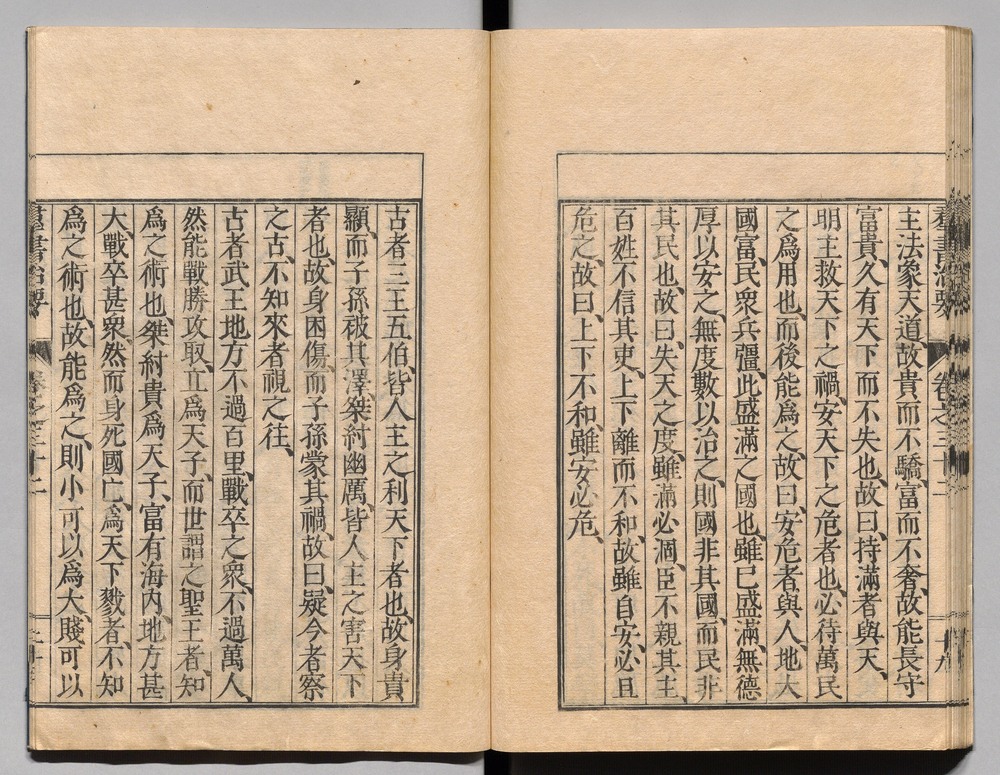 羣書治要 卷之三十二 十九
主法象天道、故貴而不驕、富而不奢、故能長守
富貴、久有天下而不失也、故曰、持滿者與天、
明主救天下之禍、安天下之危者也、必待萬民
之爲用也、而後能爲之、故曰、安危者與人、地大
國富、民衆兵彊、此盛滿之國也、雖已盛滿、無德
厚以安之、無度數以治之、則國非其國、而民非
其民也、故曰、失天之度、雖滿必涸、臣不親其主、
百姓不信其吏、上下離而不和、故雖自安、必且
危之、故曰、上下不和、雖安必危、
古者三王五伯、皆人主之利天下者也、故身貴
顯、而子孫被其澤、桀紂幽厲、皆人主之害天下
者也、故身困傷、而子孫蒙其禍、故曰、疑今者察
之古、不知來者視之往、
古者武王地方不過百里、戰卒之衆、不過萬人、
然能戰勝攻取、立爲天子、而世謂之聖王者、知
爲之術也、桀紂貴爲天子、富有海内、地方甚
大、戰卒甚衆、然而身死國亡、爲天下戮者、不知
爲之術也、故能爲之、則小可以爲大、賤可以
羣書治要 卷之三十二